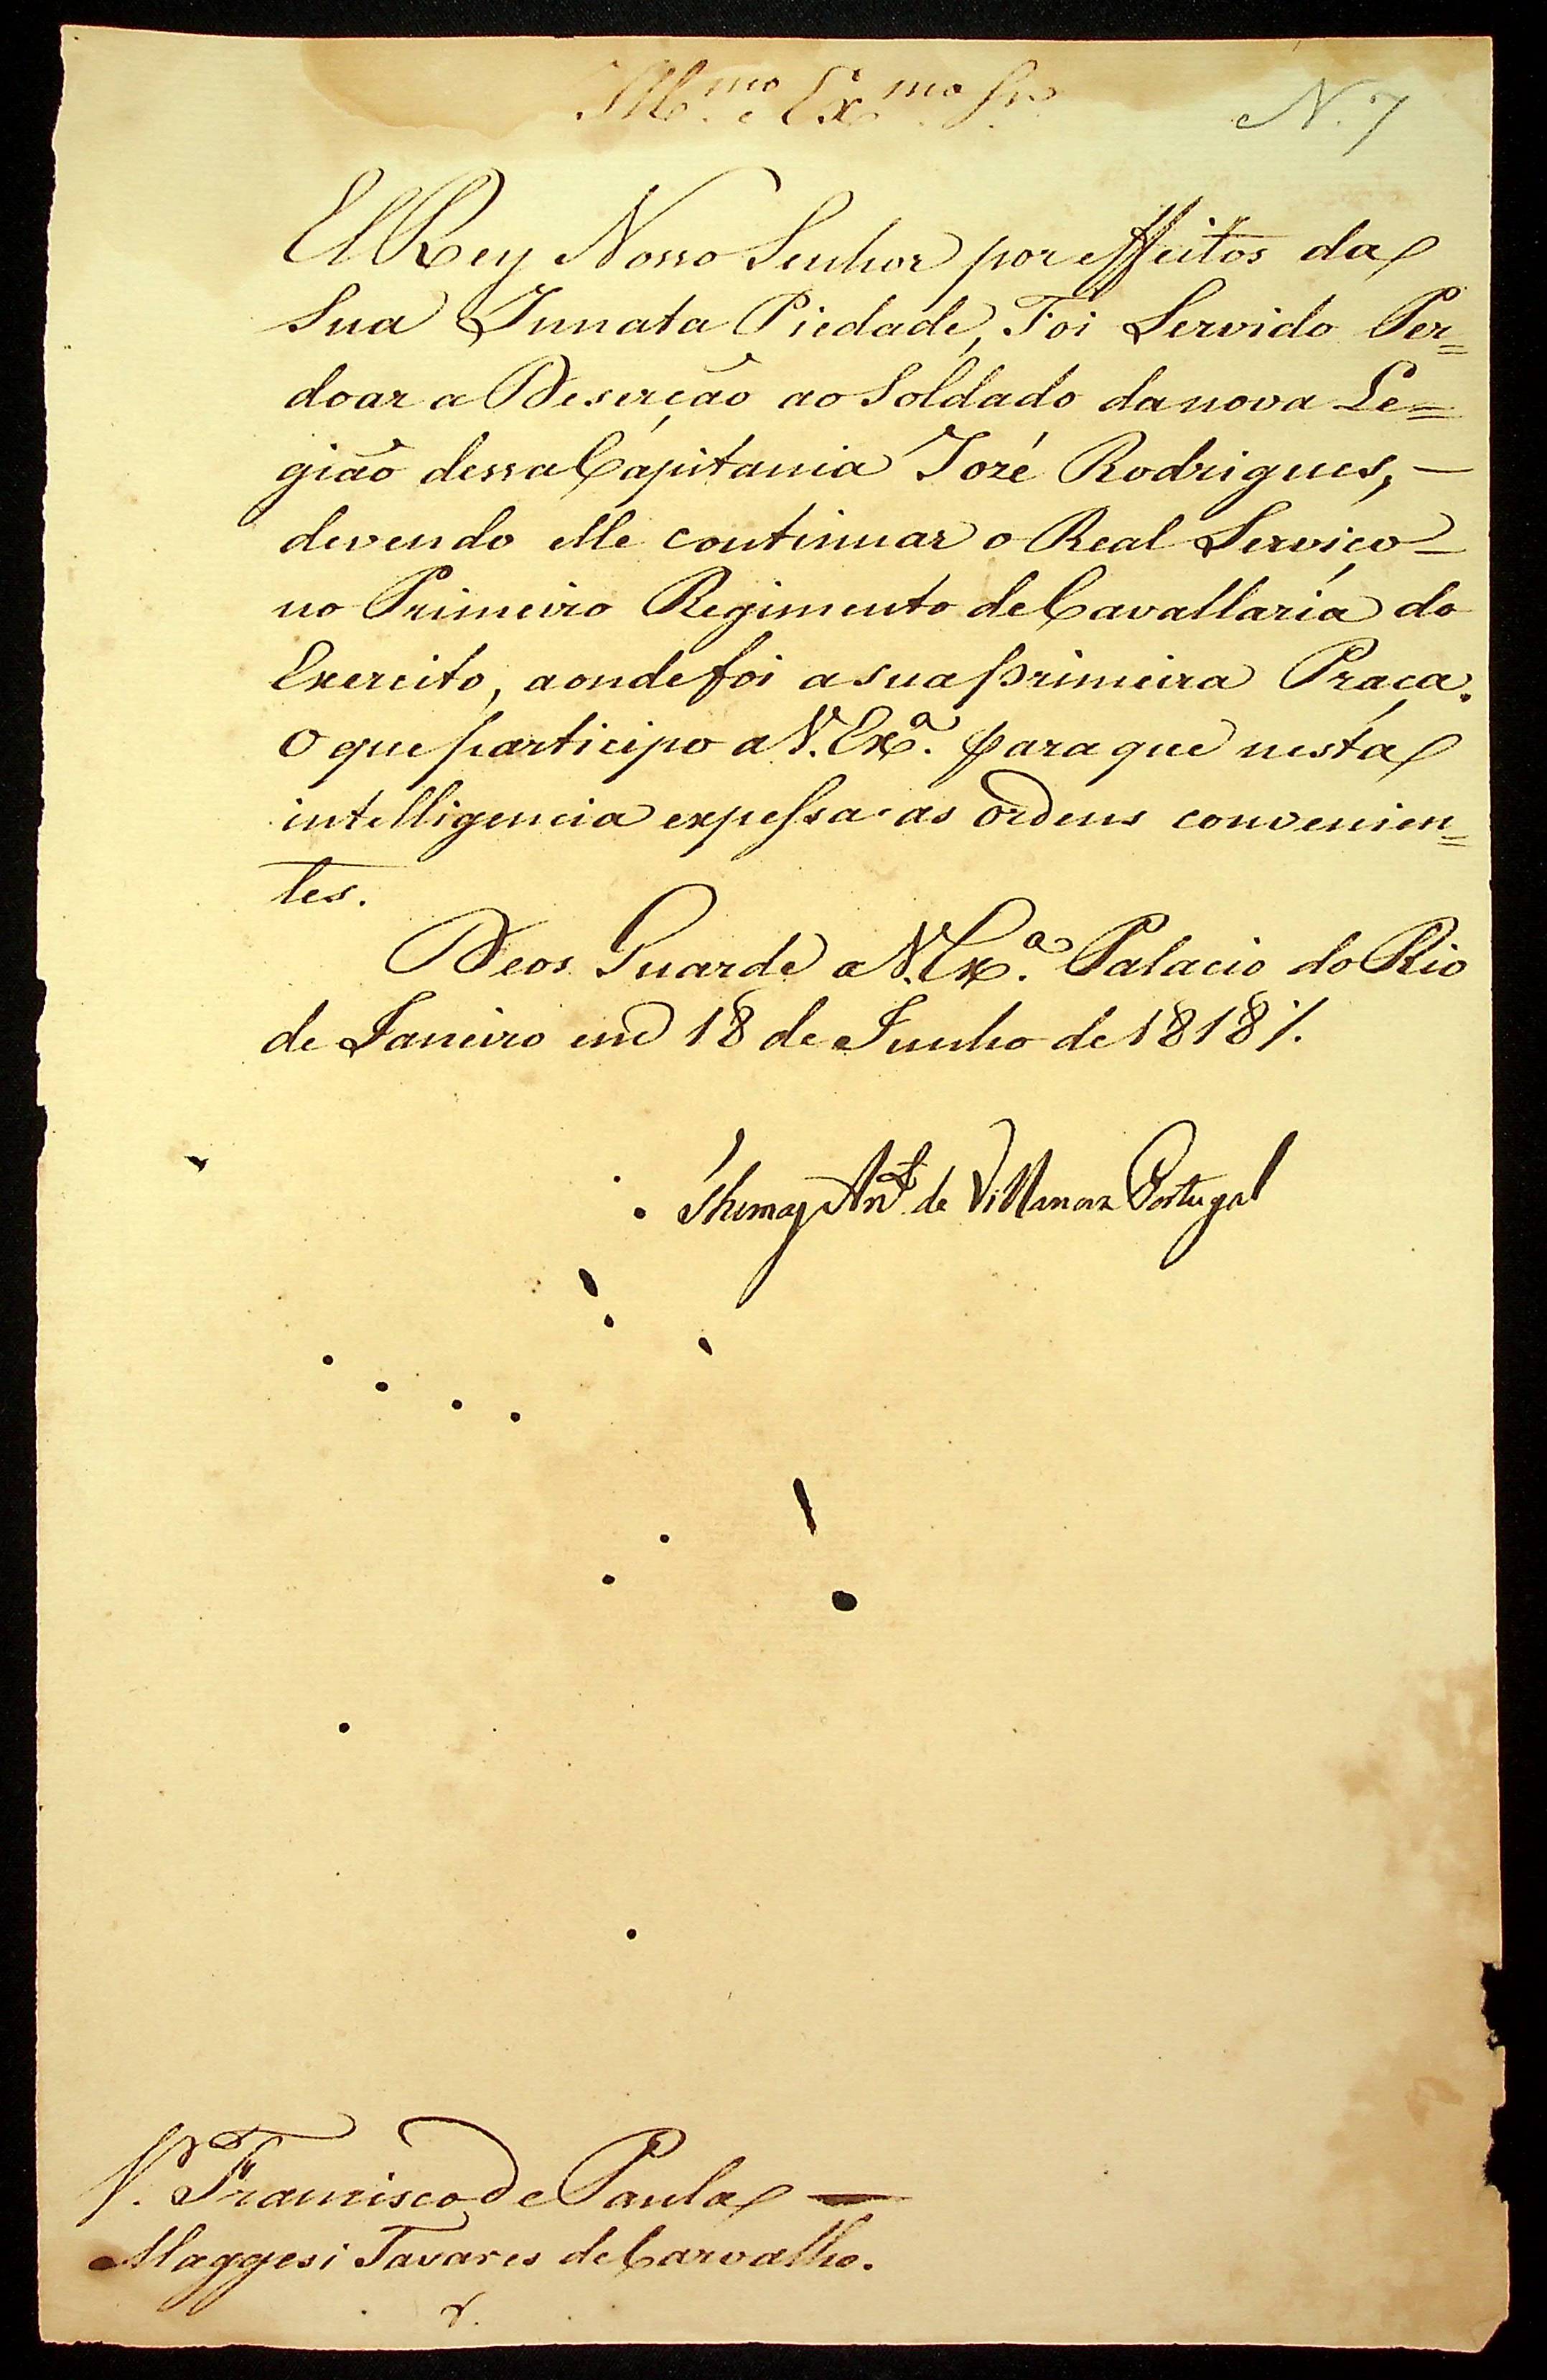 Ill.mo e Ex.mo Sr.
N. 7
El Rey Nosso Senhor por effeitos da
Sua Innata Piedade, Foi Servido Per=
doar a Deserção ao Soldado da nova Le=
gião dessa Capitania Jozé Rodrigues, —
devendo elle continuar o Real Serviço —
no Primeiro Regimento de Cavallaria do
Exercito, aonde foi a sua primeira Praça.
O que participo a V. Ex.a para que nesta
intelligencia expessa as ordens convenien=
tes.
Deos Guarde a V. Ex.a Palacio do Rio
de Janeiro em 18 de Junho de 1818 /.
Thomaz Ant.o de Villanova Portugal
Francisco de Paula —
Maggesi Tavares de Carvalho.